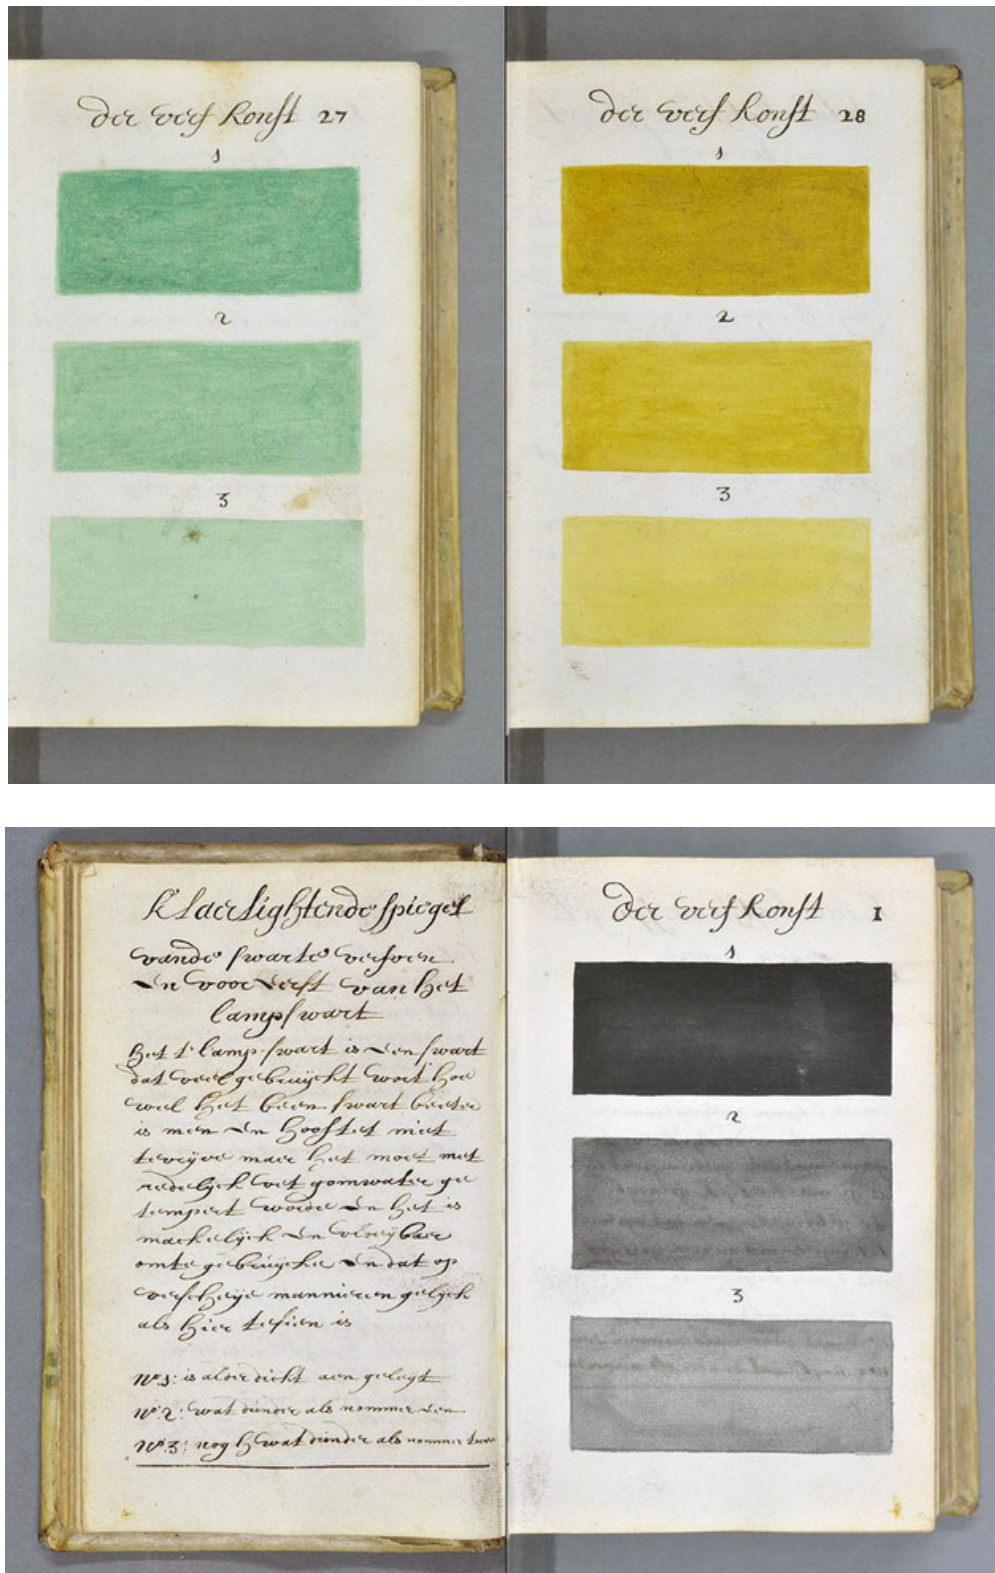 der verf konst 27
1
2
3
der verf konst 28
1
2
3
klaerlightende spiegel
vande swarte verfven
en voor eerst van het
lampswart
Het t' lamp-swart is een swart
dat veel gebruijckt wort hoe
wel het been swart beeter
is men en hooftet niet
tevrijve maer het moet met
redelyck vet gomwater ge
tempert worde en het is
mackelyck en vloeijbaer
omte gebruijcke en dat op
verscheije mannieren gelyck
als hier tesien is
No 1: is alder dicht aen geleyt
No 2: wat dunder als nommer een
No 3: nog wat dunder als nommer twee
der verf konst 1
1
2
3